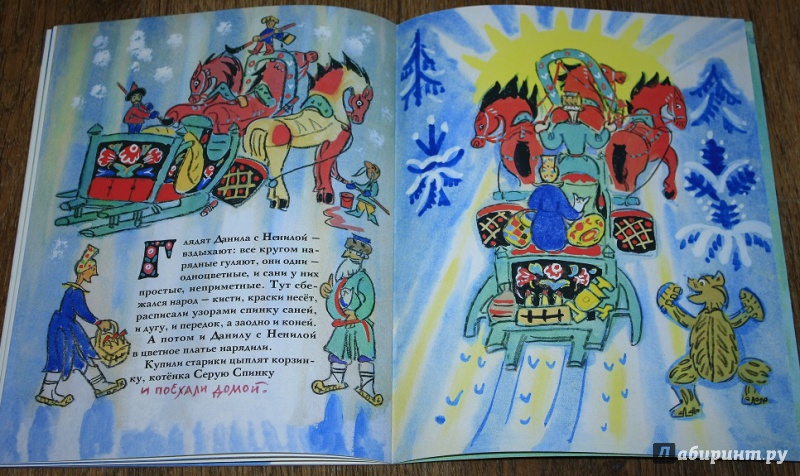 Глядят Данила с Ненилой —
вздыхают: все кругом на-
рядные гуляют, они одни —
одноцветные, и сани у них
простые, неприметные. Тут сбе-
жался народ — кисти, краски несёт,
расписали узорами спинку саней,
и дугу, и передок, а заодно и коней.
А потом и Данилу с Ненилой
в цветное платье нарядили.
Купили старики цыплят корзин-
ку, котёнка Серую Спинку
и поехали домой.
Лабиринт.ру